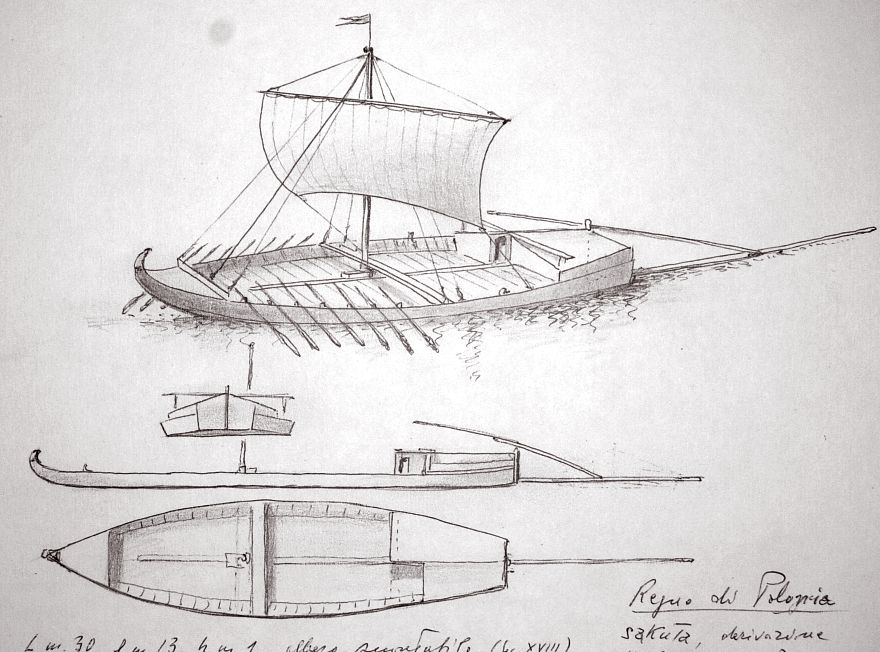 Regno di Polonia
sakuta, derivazione
L m. 30 l m 13 h m 1 albero smontabile (sec XVIII)